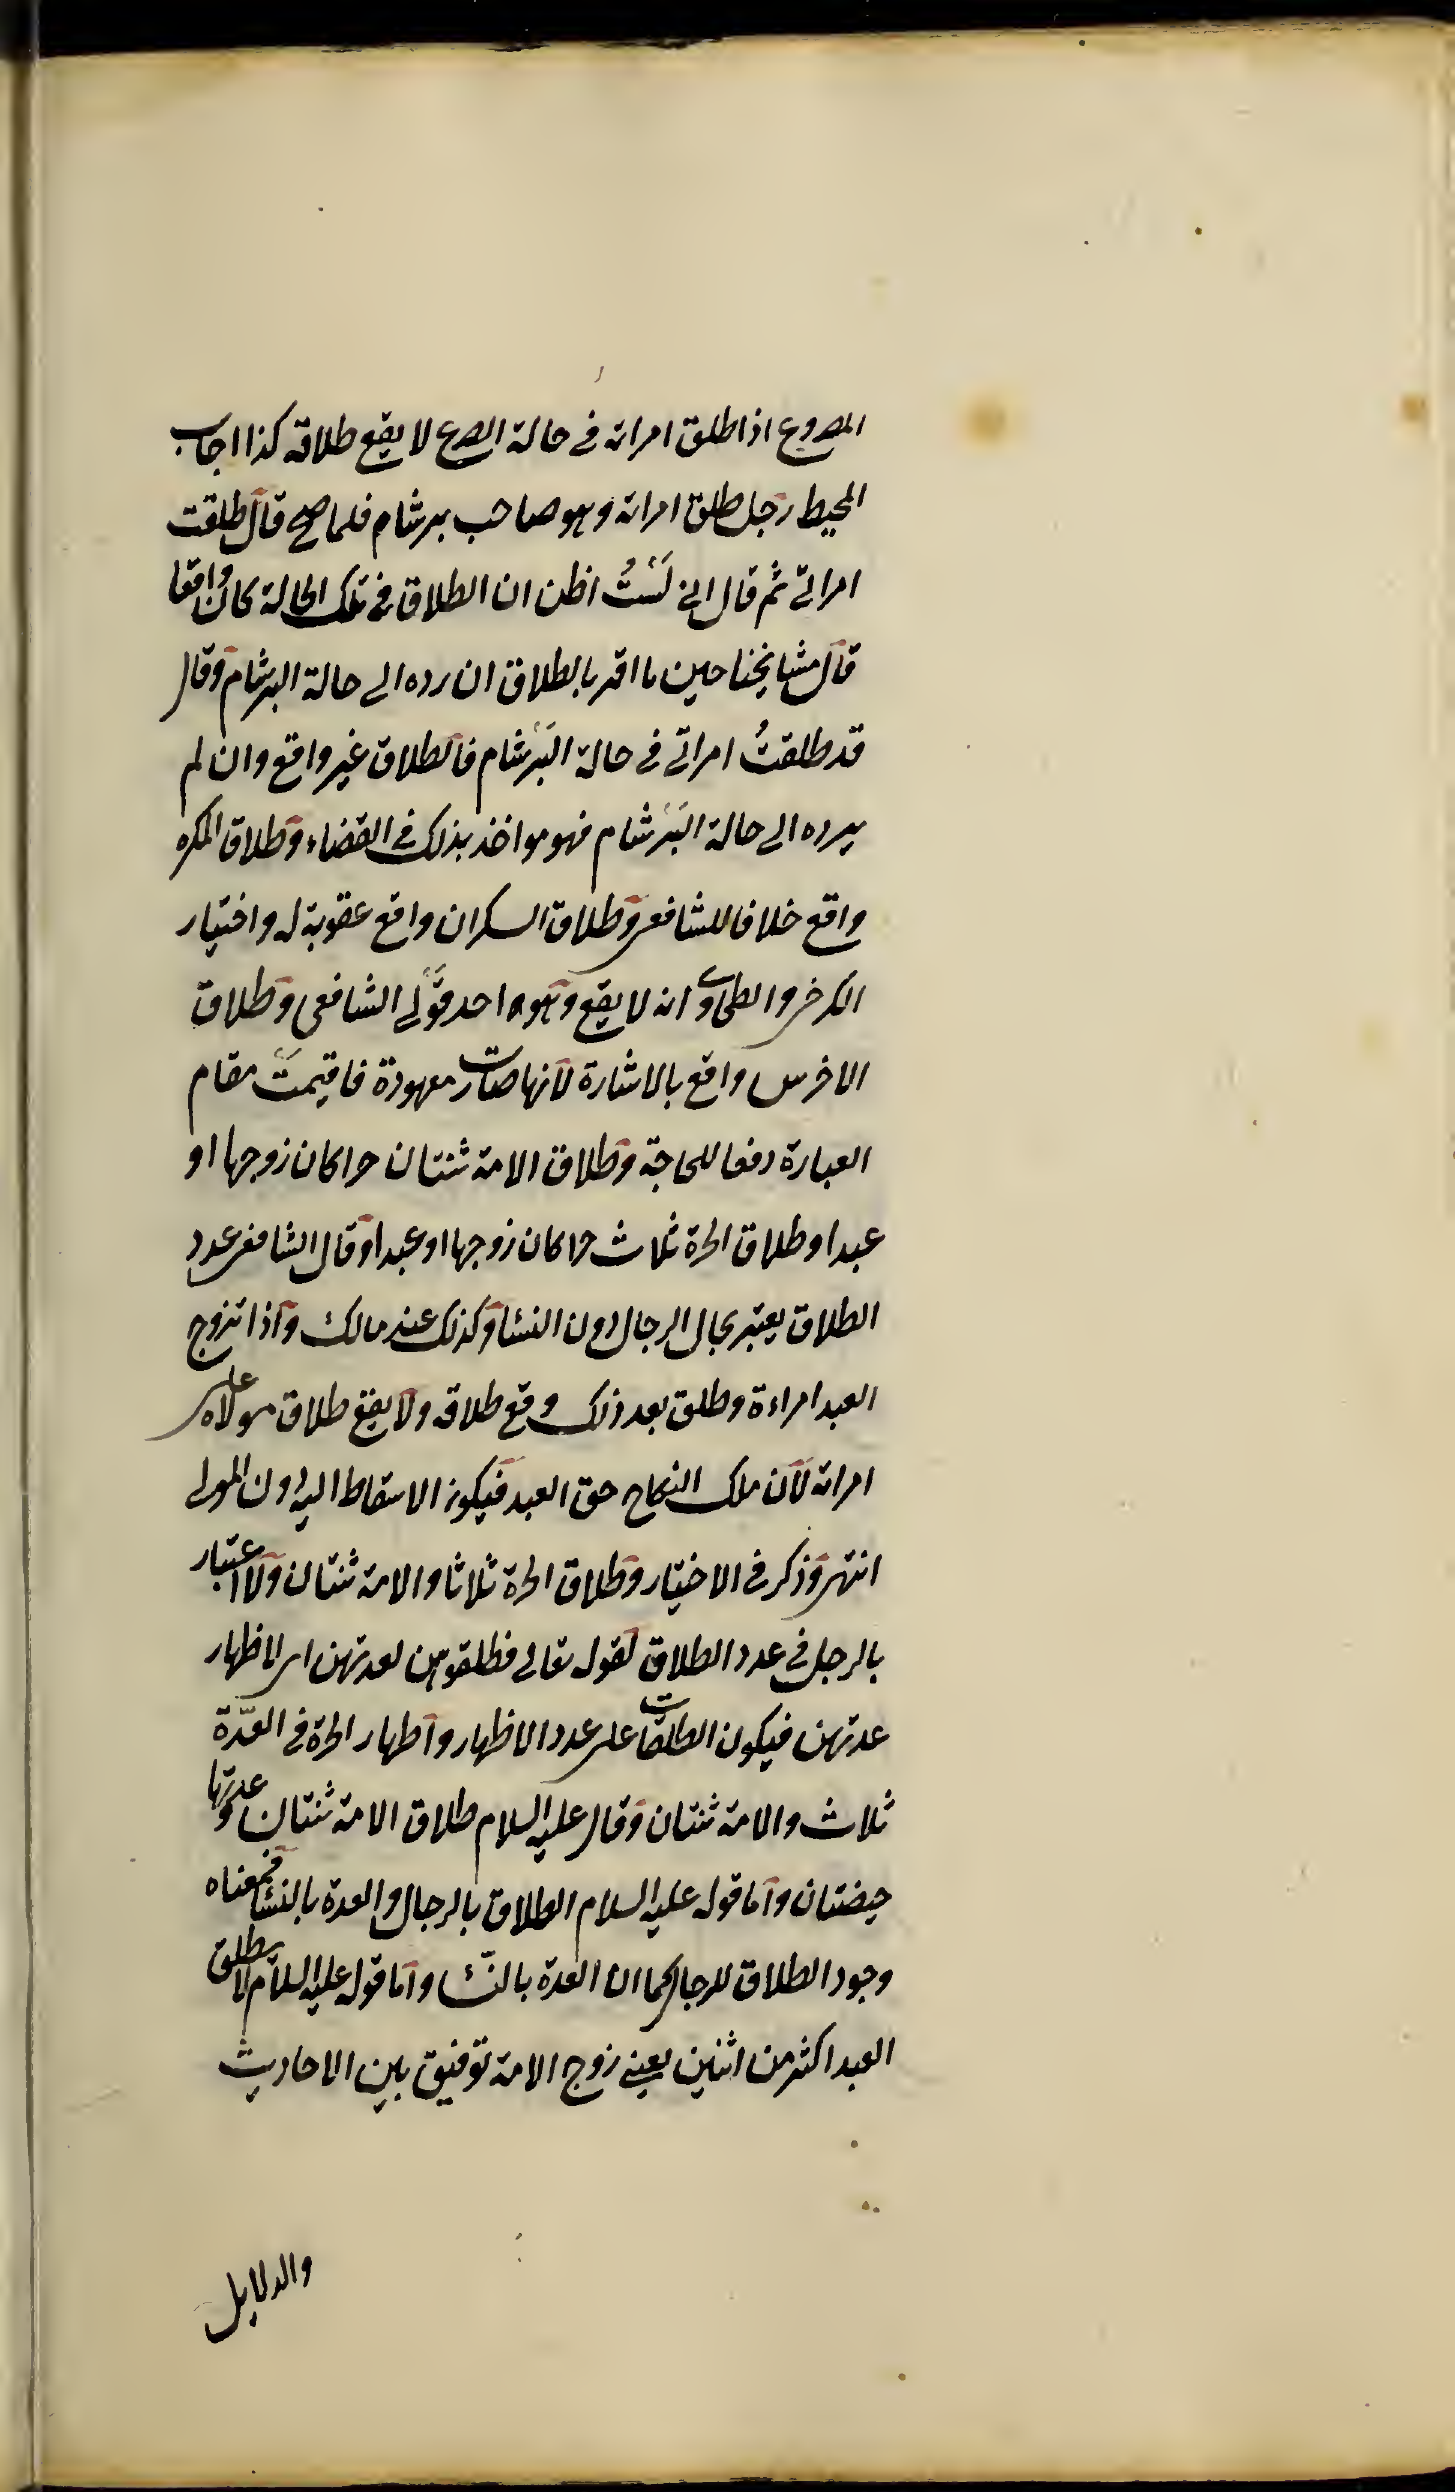 المصروع اذا طلق امراته فى حالة الصرع لا يقع طلاقه كذا اجاب
المحيط رجل طلق امراته وهو صاحب برشام فلما صح قال طلقت
امراتي ثم قال اني لَسْتُ اظن ان الطلاق فى تلك الحالة كان واقعا
قال مشايخنا حين ما اقر بالطلاق ان رده الى حالة البرشام وقال
قد طلقتُ امراتي فى حالة البَرْشام فالطلاق غير واقع وان لم
يرده الى حالة البَرْشام فهو مواخذ بذلك فى القضاء وطلاق المكره
واقع خلافا للشافعى وطلاق السكران واقع عقوبة له واختيار
الكرخى والطحاوى انه لا يقع وهو احد قَوْلي الشافعى وطلاق
الاخرس واقع بالاشارة لانها صارت معهودة فاقيمَتْ مقام
العبارة دفعا للحاجة وطلاق الامة ثنتان حرا كان زوجها او
عبدا وطلاق الحرة ثلاث حرا كان زوجها او عبدا وقال الشافعى عدد
الطلاق يعتبر بحال الرجال دون النساء وكذلك عند مالك واذا تزوج
العبد امراءة وطلق بعد ذلك وقع طلاقه ولا يقع طلاق مولاه على
امراته لان ملك النكاح حق العبد فيكون الاسقاط اليه دون المولى
انتهى وذكر فى الاختيار وطلاق الحرة ثلاثا والامة ثنتان ولا اعتبار
بالرجل فى عدد الطلاق لقوله تعالى فطلقوهن لعدتهن اى لاظهار
عدتهن فيكون الطلقات على عدد الاظهار واطهار الحرة فى العدّة
ثلاث والامة ثنتان وقال عليه السلام طلاق الامة ثنتان وعدتها
حيضتان واما قوله عليه السلام الطلاق بالرجال والعدة بالنساء فمعناه
وجود الطلاق للرجال كما ان العدة بالنساء واما قوله عليه السلام لا يطلق
العبد اكثر من اثنين يعني زوج الامة توفيق بين الاحاديث
والدلايل